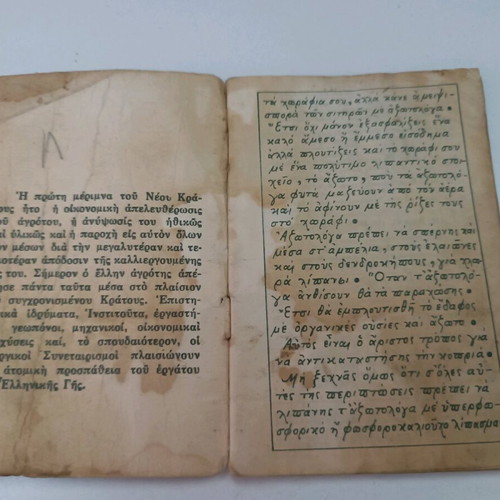 Ἡ πρώτη μέριμνα τοῦ Νέου Κρά-
ους ἦτο ἡ οἰκονομικὴ ἀπελευθέρωσις
οῦ ἀγρότου, ἡ ἀνύψωσίς του ἠθικῶς
αὶ ὑλικῶς καὶ ἡ παροχὴ εἰς αὐτὸν ὅλων
ῶν μέσων διὰ τὴν μεγαλυτέραν καὶ τε-
ειοτέραν ἀπόδοσιν τῆς καλλιεργουμένης
ῆς του. Σήμερον ὁ ἕλλην ἀγρότης ἀπέ-
τησε πάντα ταῦτα μέσα στὸ πλαίσιον
οῦ συγχρονισμένου Κράτους. Ἐπιστη-
ονικὰ ἱδρύματα, Ἰνστιτοῦτα, ἐργαστή-
γεωπόνοι, μηχανικοί, οἰκονομικαὶ
χύσεις καί, τὸ σπουδαιότερον, οἱ
ργικοὶ Συνεταιρισμοὶ πλαισιώνουν
ἀτομικὴ προσπάθεια τοῦ ἐργάτου
Ἑλληνικῆς Γῆς.
τὰ χωράφια σου, ἀλλὰ κάνε ἀμειψι-
σπορὰ τῶν σιτηρῶν μὲ ἀζωτολόγα.
Ἔτσι ὄχι μόνον ἐξασφαλίζεις ἕνα
καλὸ ἄμεσο ἢ ἔμμεσο εἰσόδημα
ἀλλὰ πλουτίζεις καὶ τὸ χωράφι σου
μὲ ἕνα πολύτιμο λιπαντικὸ στοι-
χεῖο, τὸ ἄζωτο, ποὺ τὰ ἀζωτολό-
γα φυτὰ μαζεύουν ἀπὸ τὸν ἀέρα
καὶ τὸ ἀφίνουν μὲ τῆς ρίζες τους
στὸ χωράφι.
Ἀζωτολόγα πρέπει νὰ σπέρνῃς καὶ
μέσα στ' ἀμπέλια, στοὺς ἐλαιῶνες
καὶ στοὺς δενδροκήπους, γιὰ χλω-
ρὰ λίπανσι. Ὅταν τ' ἀζωτολό-
γα ἀνθίσουν θὰ τὰ παραχώσῃς.
Ἔτσι θὰ ἐμπλουτισθῇ τὸ ἔδαφος
μὲ ὀργανικὲς οὐσίες καὶ ἄζωτο.
Αὐτὸς εἶναι ὁ ἄριστος τρόπος γιὰ
νὰ ἀντικαταστήσῃς τὴν κοπριά.
Μὴ ξεχνᾷς ὅμως ὅτι σ' ὅλες αὐ-
τὲς τῆς περιπτώσεις πρέπει νὰ
λιπάνῃς τ' ἀζωτολόγα μὲ ὑπερφω-
σφορικὸ ἢ φωσφοροκαλιοῦχο λίπασμα